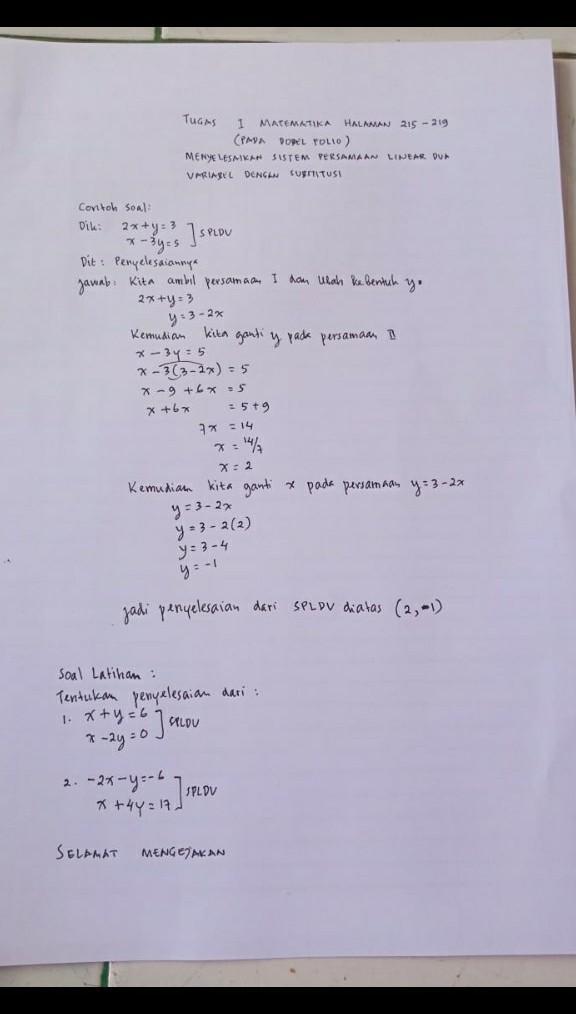 TUGAS I MATEMATIKA HALAMAN 215-219
(PADA DOBEL FOLIO)
MENYELESAIKAN SISTEM PERSAMAAN LINEAR DUA
VARIABEL DENGAN SUBTITUSI
Contoh Soal:
Dik: 2x+y=3
x-3y=5 ] SPLDV
Dit: Penyelesaiannya
Jawab: Kita ambil persamaan I dan Ubah Kebentuk y.
2x+y=3
y=3-2x
Kemudian kita ganti y pada persamaan II
x-3y=5
x-3(3-2x)=5
x-9+6x=5
x+6x=5+9
7x=14
x=14/7
x=2
Kemudian kita ganti x pada persamaan y=3-2x
y=3-2x
y=3-2(2)
y=3-4
y=-1
Jadi penyelesaian dari SPLDV diatas (2,-1)
Soal Latihan:
Tentukan penyelesaian dari:
1. x+y=6
x-2y=0 ] SPLDV
2. -2x-y=-6
x+4y=17 ] SPLDV
SELAMAT MENGEJAKAN